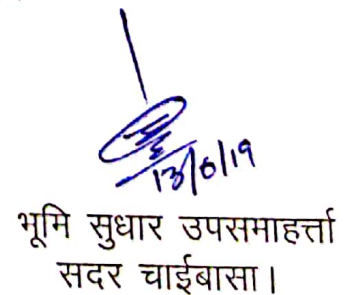 13/6/19
भूमि सुधार उपसमाहर्त्ता
सदर चाईबासा।